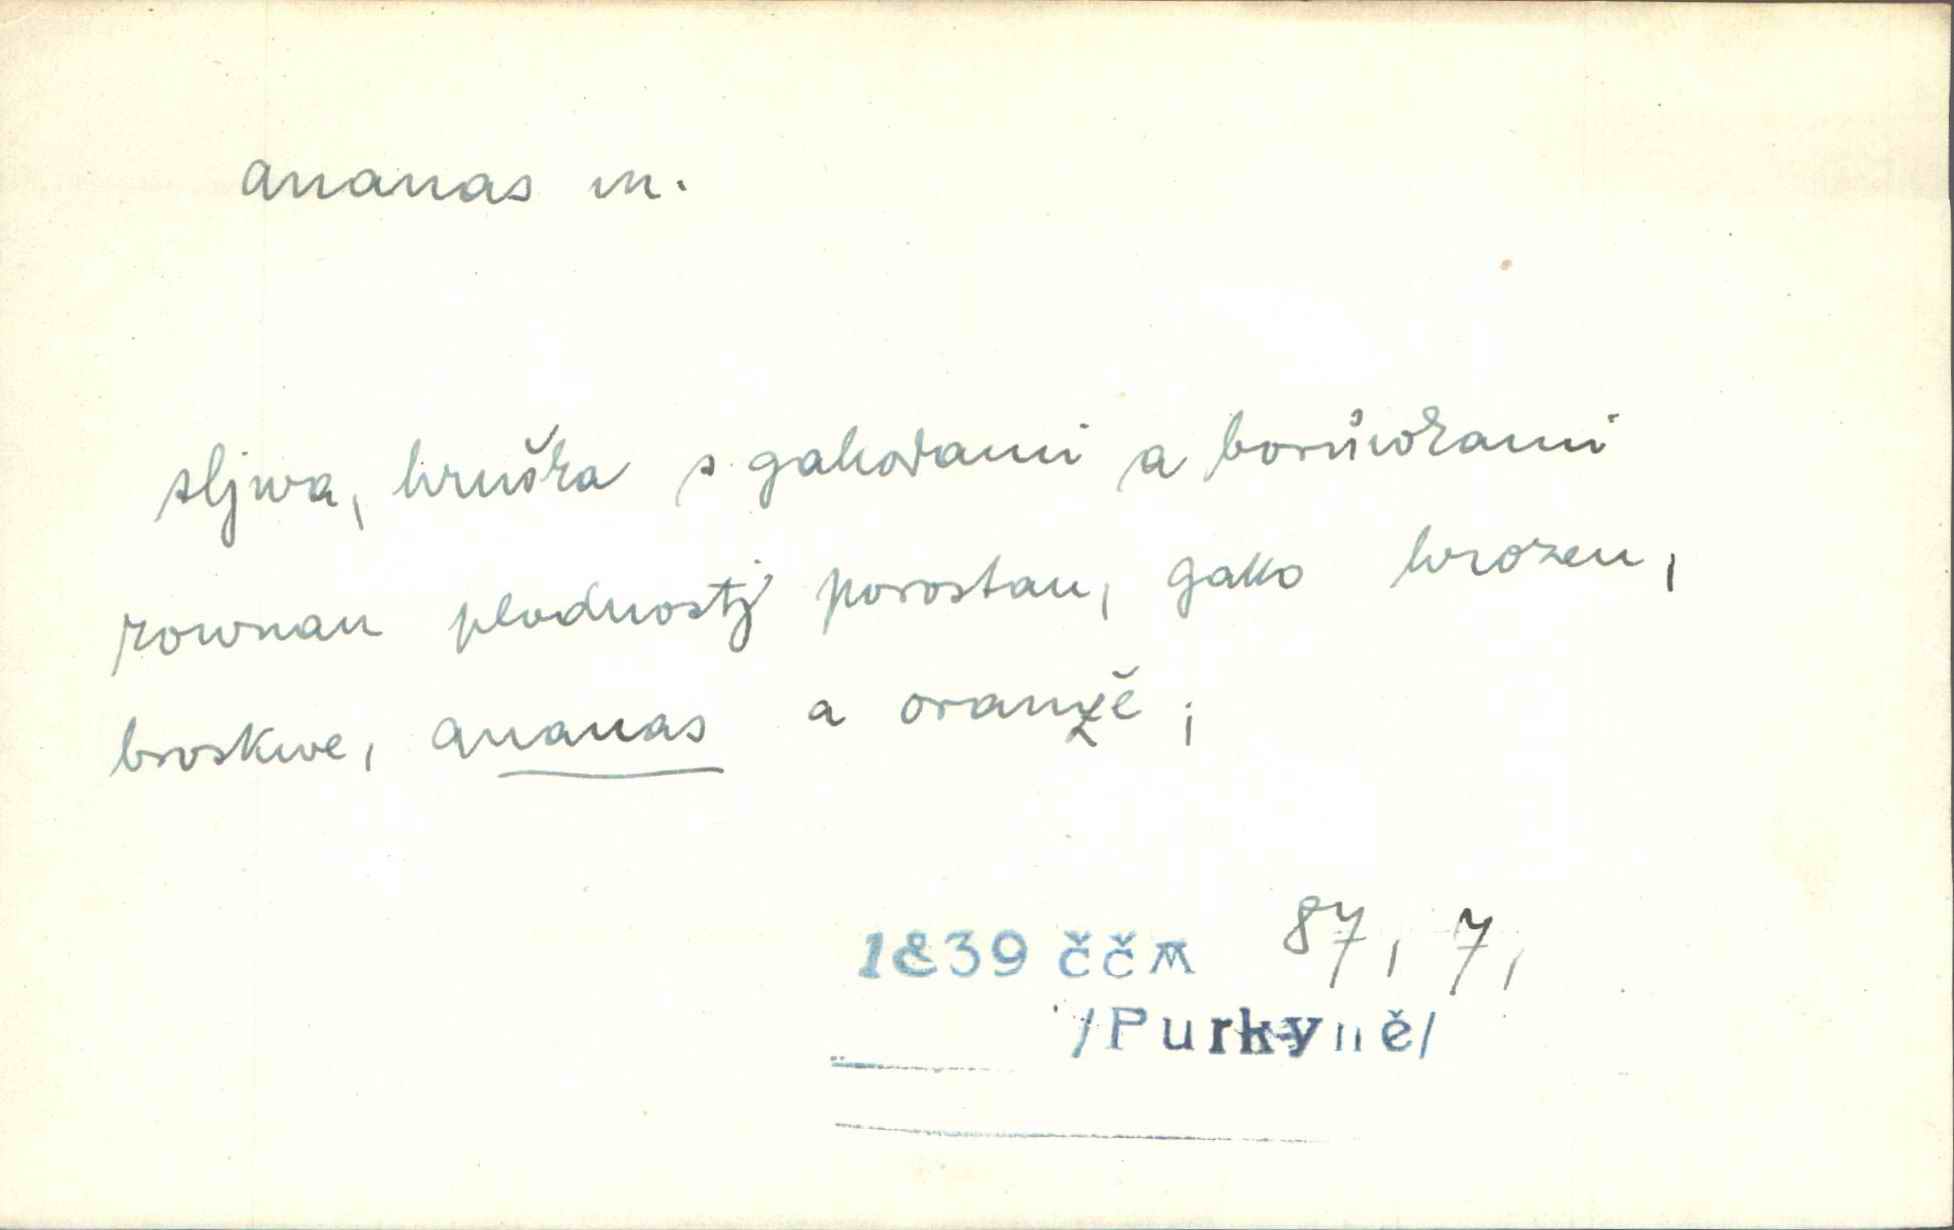 ananas m.
sljwa, hruška s gahodami a borůwkami
rownau plodnostj porostau, gako hrozen,
broskwe, ananas a oranžě;
1839 ččM 87, 7,
/Purkyně/